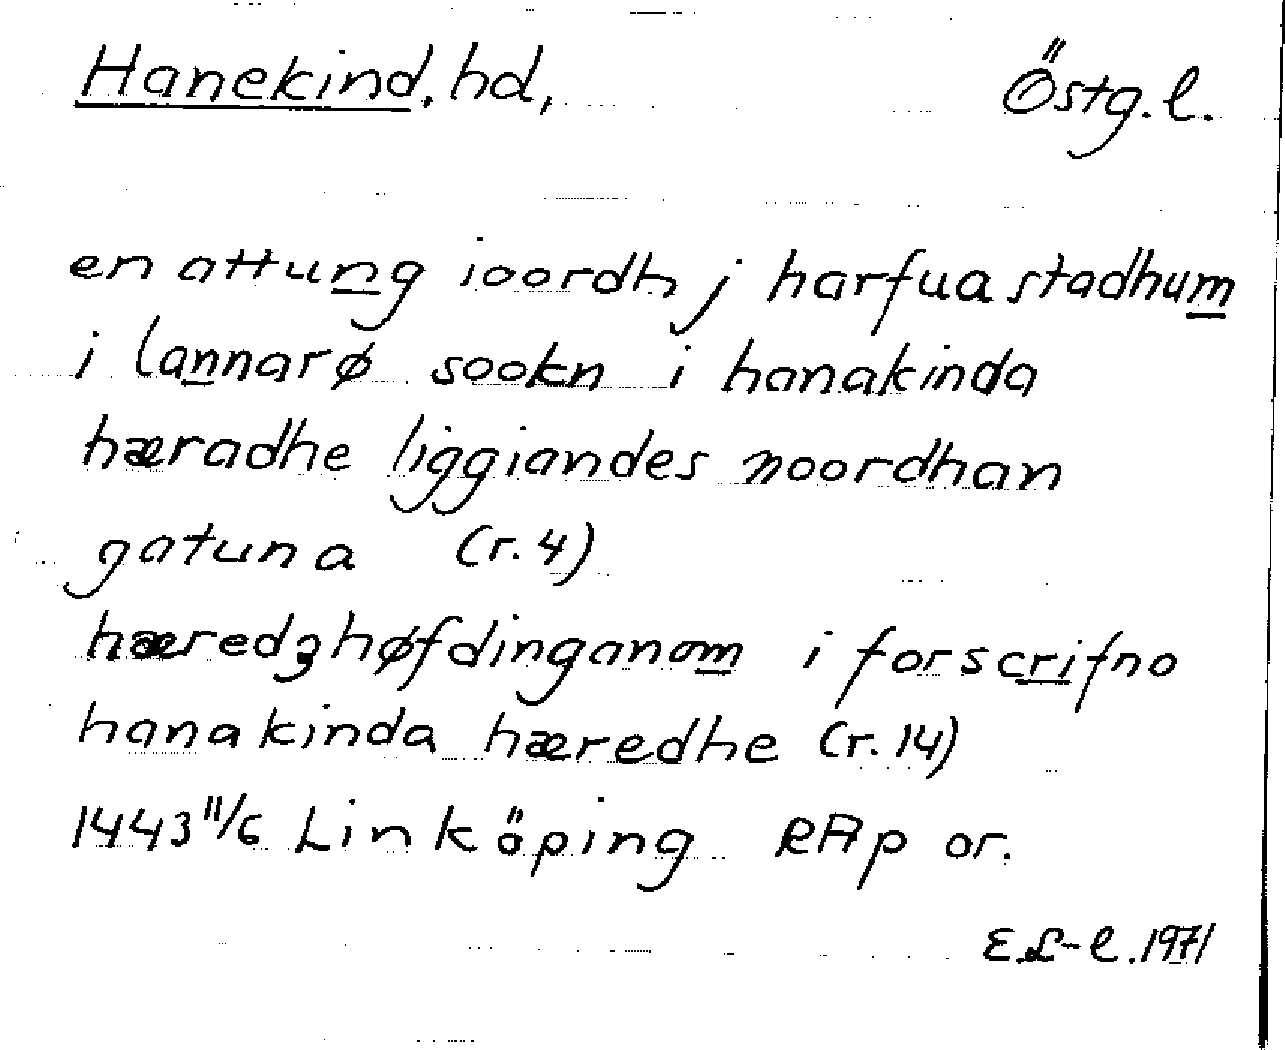 Hanekind, hd, Östg. l.
en attung ioordh j harfua stadhum
i lannarø sookn i hanakinda
hæradhe liggiandes noordhan
gatuna (r. 4)
hæredzhøfdinganom i forscrifno
hanakinda hæredhe (r. 14)
1443 11/6 Linköping RAp or.
E.L-l. 1971